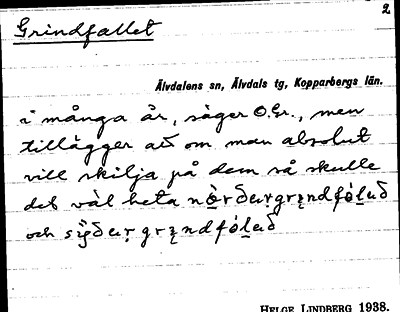 2
Grindfallet
Älvdalens sn, Älvdals tg, Kopparbergs län.
i många år, säger O.Gr., men
tillägger att om man absolut
vill skilja på dem så skulle
det väl heta
och
HELGE LINDBERG 1938.